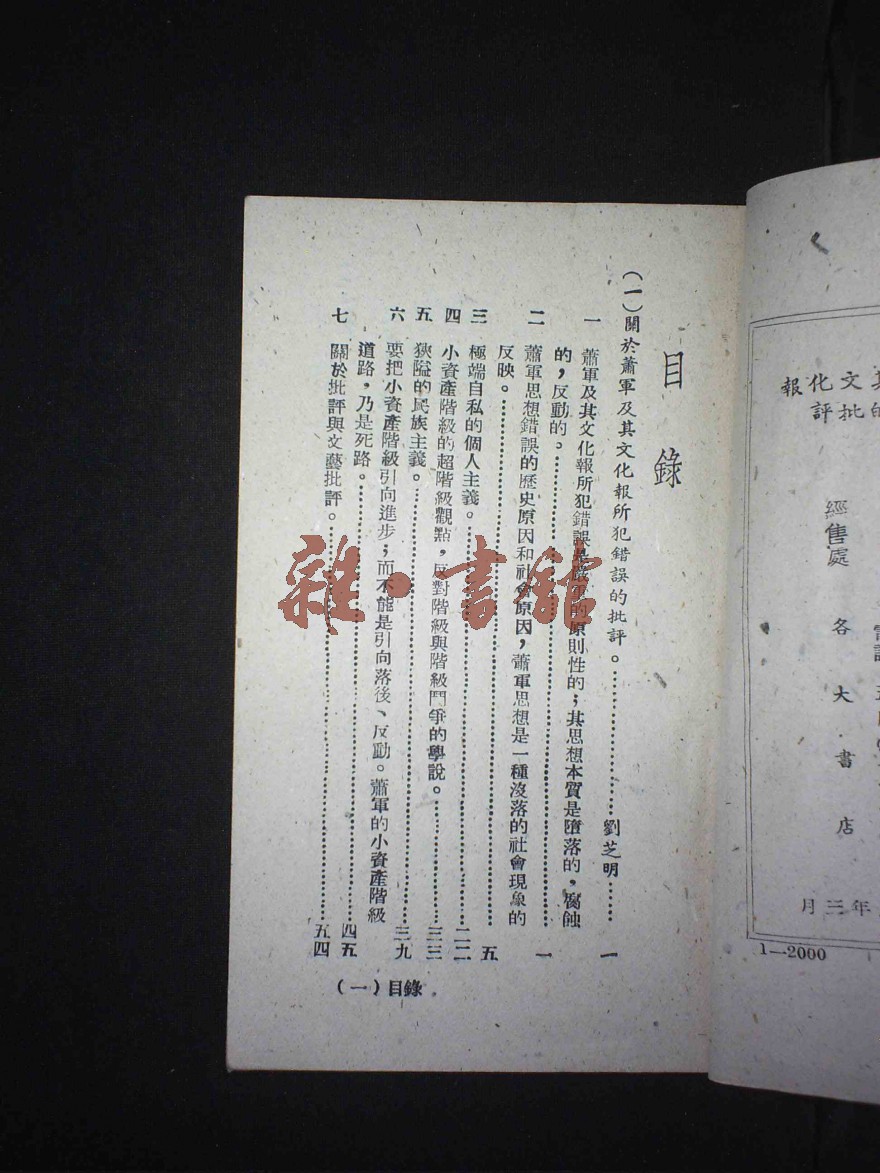 文化報
批評
經售處 各大書店
年三月
1—2000
目錄
（一）關於蕭軍及其文化報所犯錯誤的批評。……劉芝明……一
一 蕭軍及其文化報所犯錯誤是嚴重的原則性的；其思想本質是墮落的，腐蝕
的，反動的。……一
二 蕭軍思想錯誤的歷史原因和社會原因，蕭軍思想是一種沒落的社會現象的
反映。……五
三 極端自私的個人主義。……二二
四 小資產階級的超階級觀點，反對階級與階級鬥爭的學說。……三三
五 狹隘的民族主義。……三九
六 要把小資產階級引向進步；而不能是引向落後、反動。蕭軍的小資產階級
道路，乃是死路。……四五
七 關於批評與文藝批評。……五四
（一）目錄
雜·書館